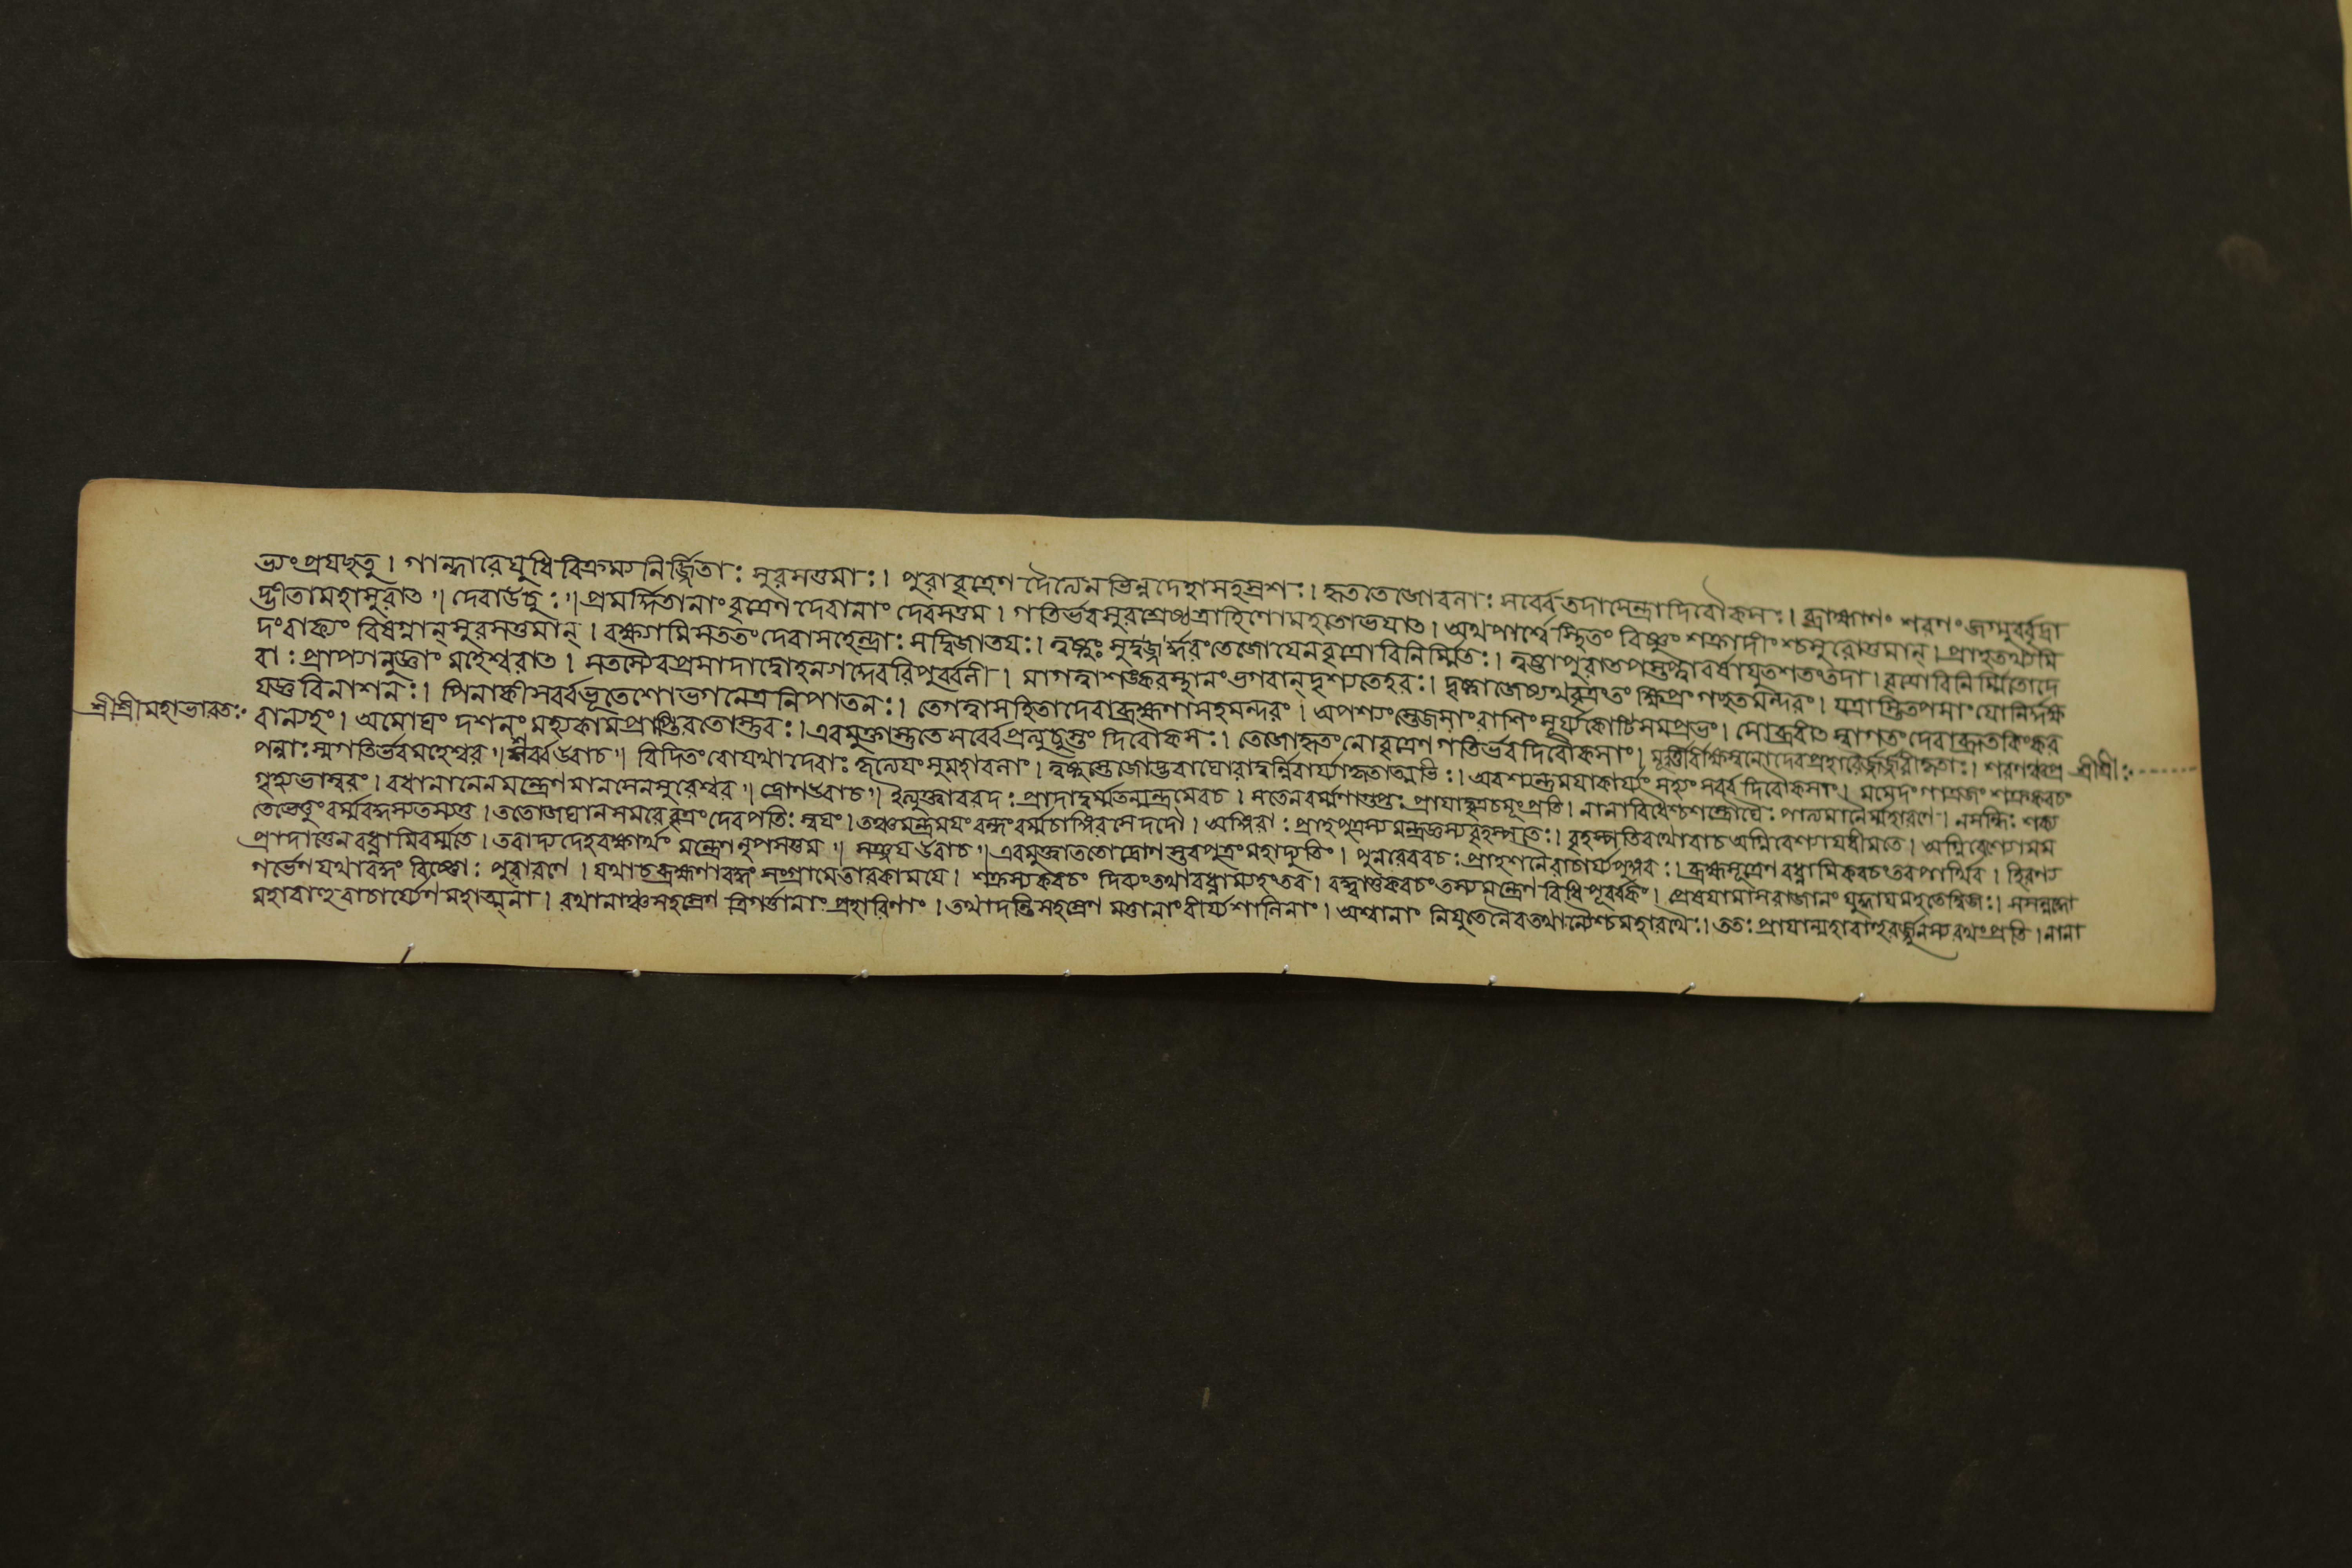 ভ্যং প্রযচ্ছতু । গান্ধারে যুধি বিক্রম্য নির্জ্জিতা: সুরসত্তমা: । পুরা বৃত্রেণ দৈত্যেন ভিন্নদেহা সহস্রশ: । হৃততেজোবলা: সর্ব্বে তদা সেন্দ্রা দিবৌকস: । ব্রহ্মাণং শরণং জগ্মুর্ব্বৃত্রা
দ্ভীতা মহাসুরাৎ ॥ দেবা ঊচু: ॥ প্রমর্দ্দিতানাং বৃত্রেণ দেবানাং দেবসত্তম । গতির্ভব সুরশ্রেষ্ঠ ত্রাহি ণো মহতো ভযাৎ । অথ পার্শ্বে স্থিতং বিষ্ণুং শক্রাদীংশ্চ সুরোত্তমান্ । প্রাহ তথ্যমি
দং বাক্যং বিষণ্ণান্ সুরসত্তমান্ । রক্ষ্যা মি সততং দেবা সহেন্দ্রা: সদ্বিজাতয: । ত্বষ্টুঃ সুদুর্দ্ধরং তেজো যেন বৃত্রো বিনির্ম্মিত: । ত্বষ্ট্রা পুরা তপস্তপ্ত্বা বর্ষাযুতশতং তদা । বৃত্রো বিনির্ম্মিতো দে
বা: প্রাপ্যানুজ্ঞাং মহেশ্বরাৎ । স তস্যৈব প্রসাদাদ্বো হন্যাদেব রিপুর্ব্বলী । নাগত্বা শঙ্করস্থানং ভগবান্ দৃশ্যতে হর: । দৃষ্ট্বা জেষ্যথ বৃত্রং তং ক্ষিপ্রং গচ্ছত মন্দরং । যত্রাস্তে তপসাং যোনির্দক্ষ
যজ্ঞবিনাশন: । পিনাকী সর্ব্বভূতেশো ভগনেত্রনিপাতন: । তে গত্বা সহিতা দেবা ব্রহ্মণা সহ মন্দরং । অপশ্যংস্তেজসাং রাশিং সূর্য্যকোটিসমপ্রভং । সোব্রবীৎ স্বাগতং দেবা ব্রূত কিং কর
শ্রীশ্রীমহাভারত:
বাণ্যহং । অমোঘং দর্শনং মহ্যং কামপ্রাপ্তিরতোস্তু ব: । এবমুক্তাস্তু তে সর্ব্বে প্রত্যূচুস্তং দিবৌকস: । তেজো হৃতং নো বৃত্রেণ গতির্ভব দিবৌকসাং । মূর্ত্তীর্বীক্ষস্ব নো দেব প্রহারৈর্জর্জরীকৃতা: । শরণঞ্চ প্র
শ্রীশ্রী:
পন্না: স্ম গতির্ভব মহেশ্বর ॥ শর্ব্ব উবাচ ॥ বিদিতং বো যথা দেবাঃ কৃত্যেযং সুমহাবলাং । ত্বষ্টুস্তেজোদ্ভবা ঘোরা দুর্ন্নিবার্য্যাকৃতাত্মভি: । অবশ্যন্তু মযা কার্য্যং সহ্যং সর্ব্বদিবৌকসাং । মমেদং গাত্রজং শক্র কবচং
গৃহ্য ভাস্বরং । বধানানেন মন্ত্রেণ মানসেন সুরেশ্বর ॥ দ্রোণ উবাচ ॥ ইত্যুক্ত্বা বরদ: প্রাদাদ্বর্ম্ম তন্মন্ত্রমেব চ । স তেন বর্ম্মণা গুপ্ত: প্রাযাদ্বৃত্রচমূং প্রতি । নানাবিধৈশ্চ শস্ত্রৌঘৈ: পাত্যমানৈর্ম্মহারণে । ন সন্ধি: শক্য
তে ভেত্তুং বর্ম্মবন্ধস্য তস্য তু । ততো জঘান সমরে বৃত্রং দেবপতি: স্বযং । তঞ্চ মন্ত্রমযং বন্ধং বর্ম্ম চাঙ্গিরসে দদৌ । অঙ্গিরা: প্রাহ পুত্রস্য মন্ত্রজ্ঞস্য বৃহস্পতে: । বৃহস্পতিরথোবাচ অগ্নিবেশ্যায ধীমতে । অগ্নিবেশ্যো মম
প্রাদাত্তেন বধ্নামি বর্ম্ম তে । তবাদ্য দেহরক্ষার্থং মন্ত্রেণ নৃপসত্তম ॥ সঞ্জয উবাচ ॥ এবমুক্ত্বা ততো দ্রোণস্তব পুত্রং মহাদ্যুতিং । পুনরেব বচ: প্রাহ শনৈরাচার্য্যপুঙ্গব: । ব্রহ্মসূত্রেণ বধ্নামি কবচং তব পার্থিব । হিরণ্য
গর্ভেণ যথা বদ্ধং বিষ্ণো: পুরা রণে । যথা চ ব্রহ্মণা বদ্ধং সংগ্রামে তারকামযে । শক্রস্য কবচং দিব্যং তথা বধ্নাম্যহং তব । বদ্ধ্বা তু কবচং তস্য মন্ত্রেণ বিধিপূর্ব্বকং । প্রেষযামাস রাজানং যুদ্ধায মহতে দ্বিজ: । স সন্নদ্ধো
মহাবাহুরাচার্য্যেণ মহাত্মনা । রথানাঞ্চ সহস্রেণ ত্রিগর্ত্তানাং প্রহারিণাং । তথা দন্তিসহস্রেণ মত্তানাং বীর্য্যশালিনাং । অশ্বানাং নিযুতেনৈব তথান্যৈশ্চ মহারথৈ: । তত: প্রাযান্মহাবাহুরর্জ্জুনস্য রথং প্রতি । নানা